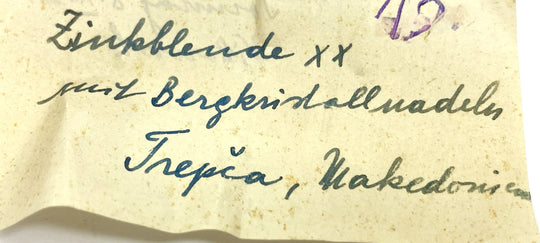 Zinkblende xx
mit Bergkristallnadeln
Trepča, Makedonien